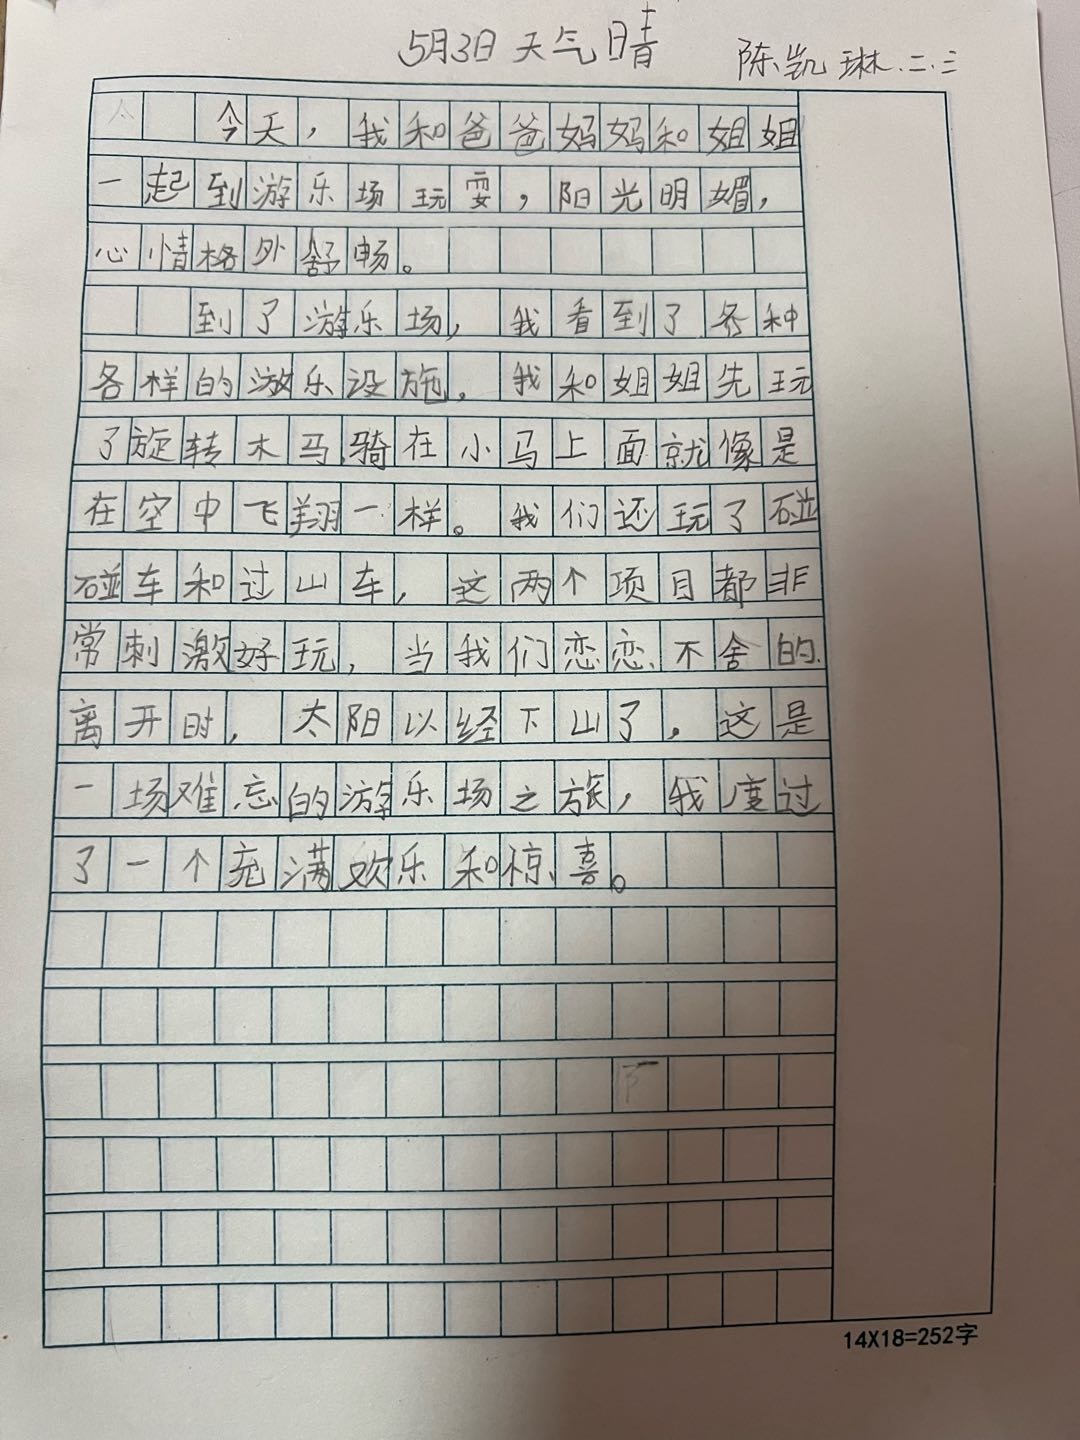 5月3日 天气晴
陈凯琳.二.三
今天，我和爸爸妈妈和姐姐
一起到游乐场玩耍，阳光明媚，
心情格外舒畅。
到了游乐场，我看到了各种
各样的游乐设施，我和姐姐先玩
了旋转木马，骑在小马上面就像是
在空中飞翔一样。我们还玩了碰
碰车和过山车，这两个项目都非
常刺激好玩，当我们恋恋不舍的
离开时，太阳以经下山了，这是
一场难忘的游乐场之旅，我度过
了一个充满欢乐和惊喜。
14X18=252字